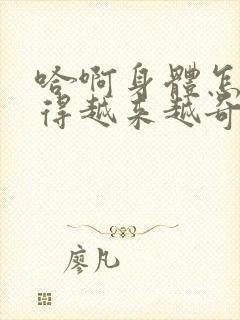 哈啊身體怎
得越来越奇
廖凡